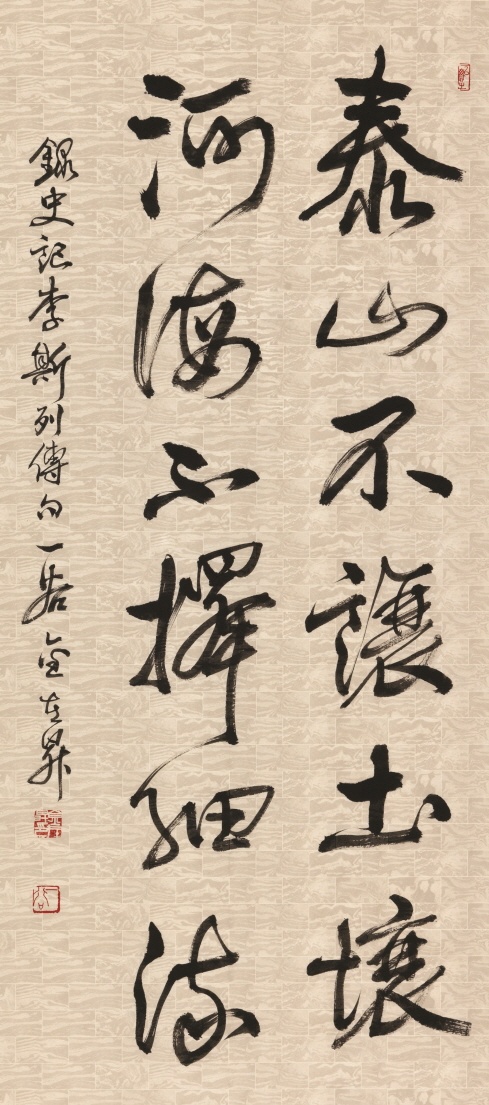 泰山不讓土壤
河海不擇細流
錄史記李斯列傳句 一谷 金